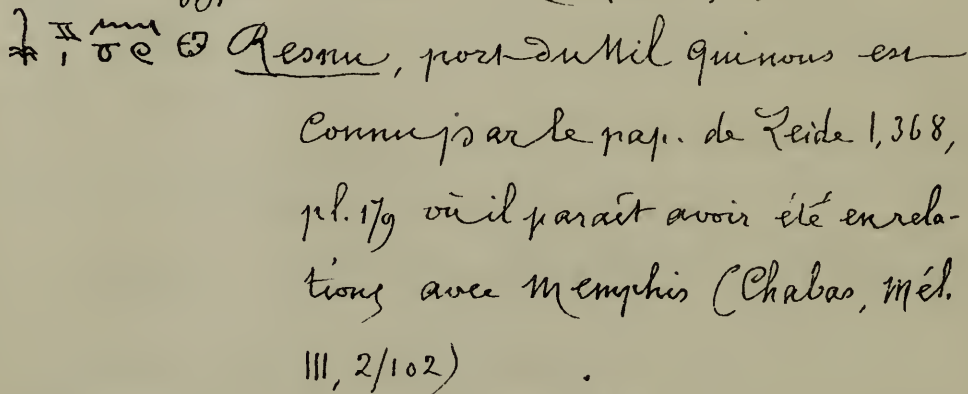 Resnu, port du Nil qui nous est
connu par le pap. de Leide 1,368,
pl. 179 où il paraît avoir été en rela-
tions avec Memphis (Chabas, Mél.
III, 2/102)